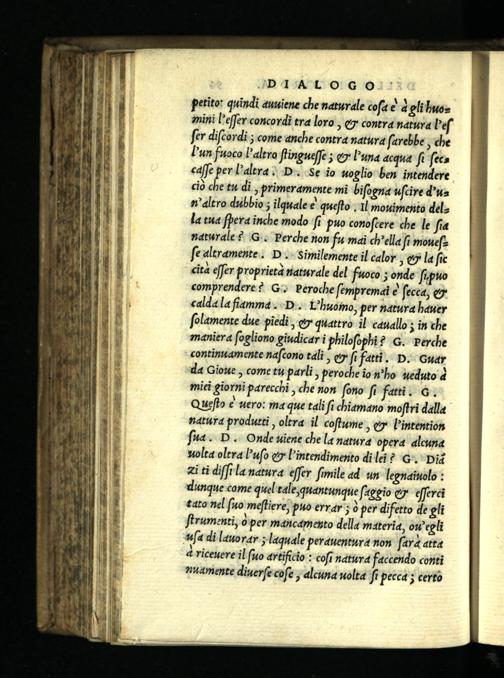 DIALOGO
petito: quindi auuiene che naturale cosa è à gli huo=
mini l'esser concordi tra loro, & contra natura l'es
ser discordi; come anche contra natura sarebbe, che
l'un fuoco l'altro stinguesse; & l'una acqua si sec=
casse per l'altra. D. Se io uoglio ben intendere
ciò che tu di, primeramente mi bisogna uscire d'u=
n'altro dubbio; ilquale è questo. Il mouimento del=
la tua spera inche modo si puo conoscere che le sia
naturale? G. Perche non fu mai ch'ella si moues=
se altramente. D. Similemente il calor, & la sic
cità esser proprietà naturale del fuoco; onde si puo
comprendere? G. Peroche sempremai è secca, &
calda la fiamma. D. L'huomo, per natura hauer
solamente due piedi, & quattro il cauallo; in che
maniera sogliono giudicar i philosophi? G. Perche
continuamente nascono tali, & si fatti. D. Guar
da Gioue, come tu parli, peroche io n'ho ueduto à
miei giorni parecchi, che non sono si fatti. G.
Questo è uero: ma que tali si chiamano mostri dalla
natura produtti, oltra il costume, & l'intention
sua. D. Onde uiene che la natura opera alcuna
uolta oltra l'uso & l'intendimento di lei? G. Diā
zi ti dissi la natura esser simile ad un legnaiuolo:
dunque come quel tale, quantunque saggio & esserci
tato nel suo mestiere, puo errar; ò per difetto de gli
strumenti, ò per mancamento della materia, ou'egli
usa di lauorar; laquale perauentura non sarà atta
à riceuere il suo artificio: cosi natura faccendo conti
nuamente diuerse cose, alcuna uolta si pecca; certo